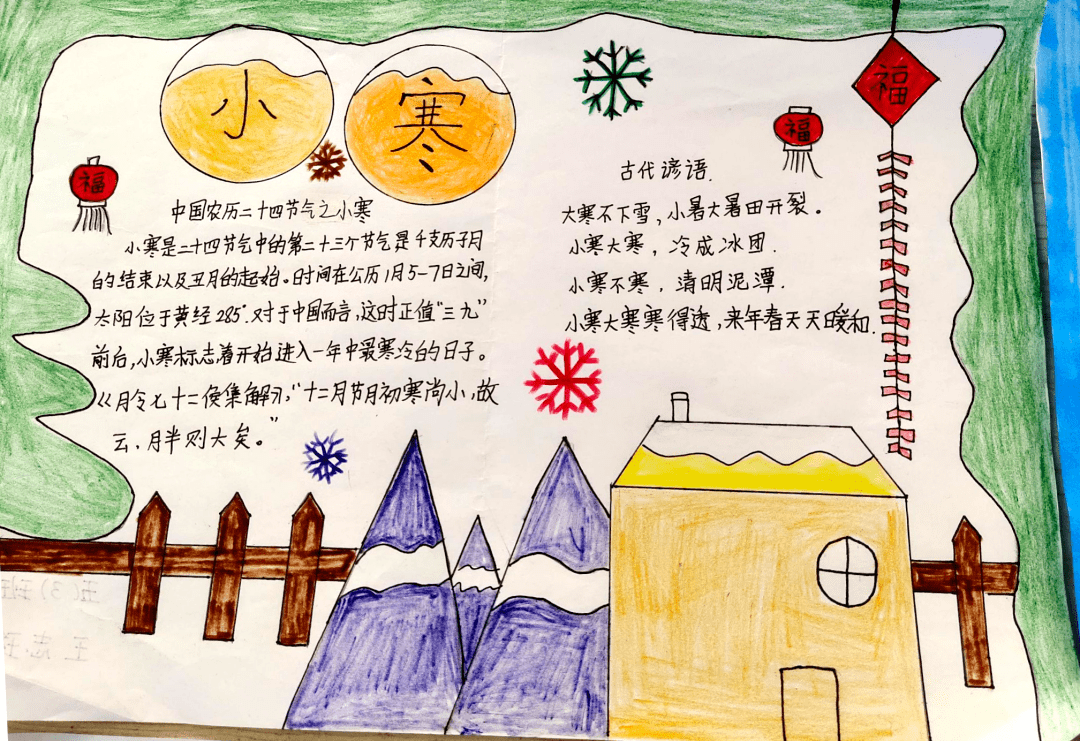 小
寒
福
福
福
中国农历二十四节气之小寒
小寒是二十四节气中的第二十三个节气是干支历子月
的结束以及丑月的起始。时间在公历1月5-7日之间,
太阳位于黄经285°.对于中国而言,这时正值"三九"
前后,小寒标志着开始进入一年中最寒冷的日子。
《月令七十二候集解》,"十二月节月初寒尚小,故
云.月半则大矣。"
古代谚语.
大寒不下雪,小暑大暑田开裂。
小寒大寒,冷成冰团.
小寒不寒,清明泥潭.
小寒大寒寒得透,来年春天天暖和.
五(3)班
王志